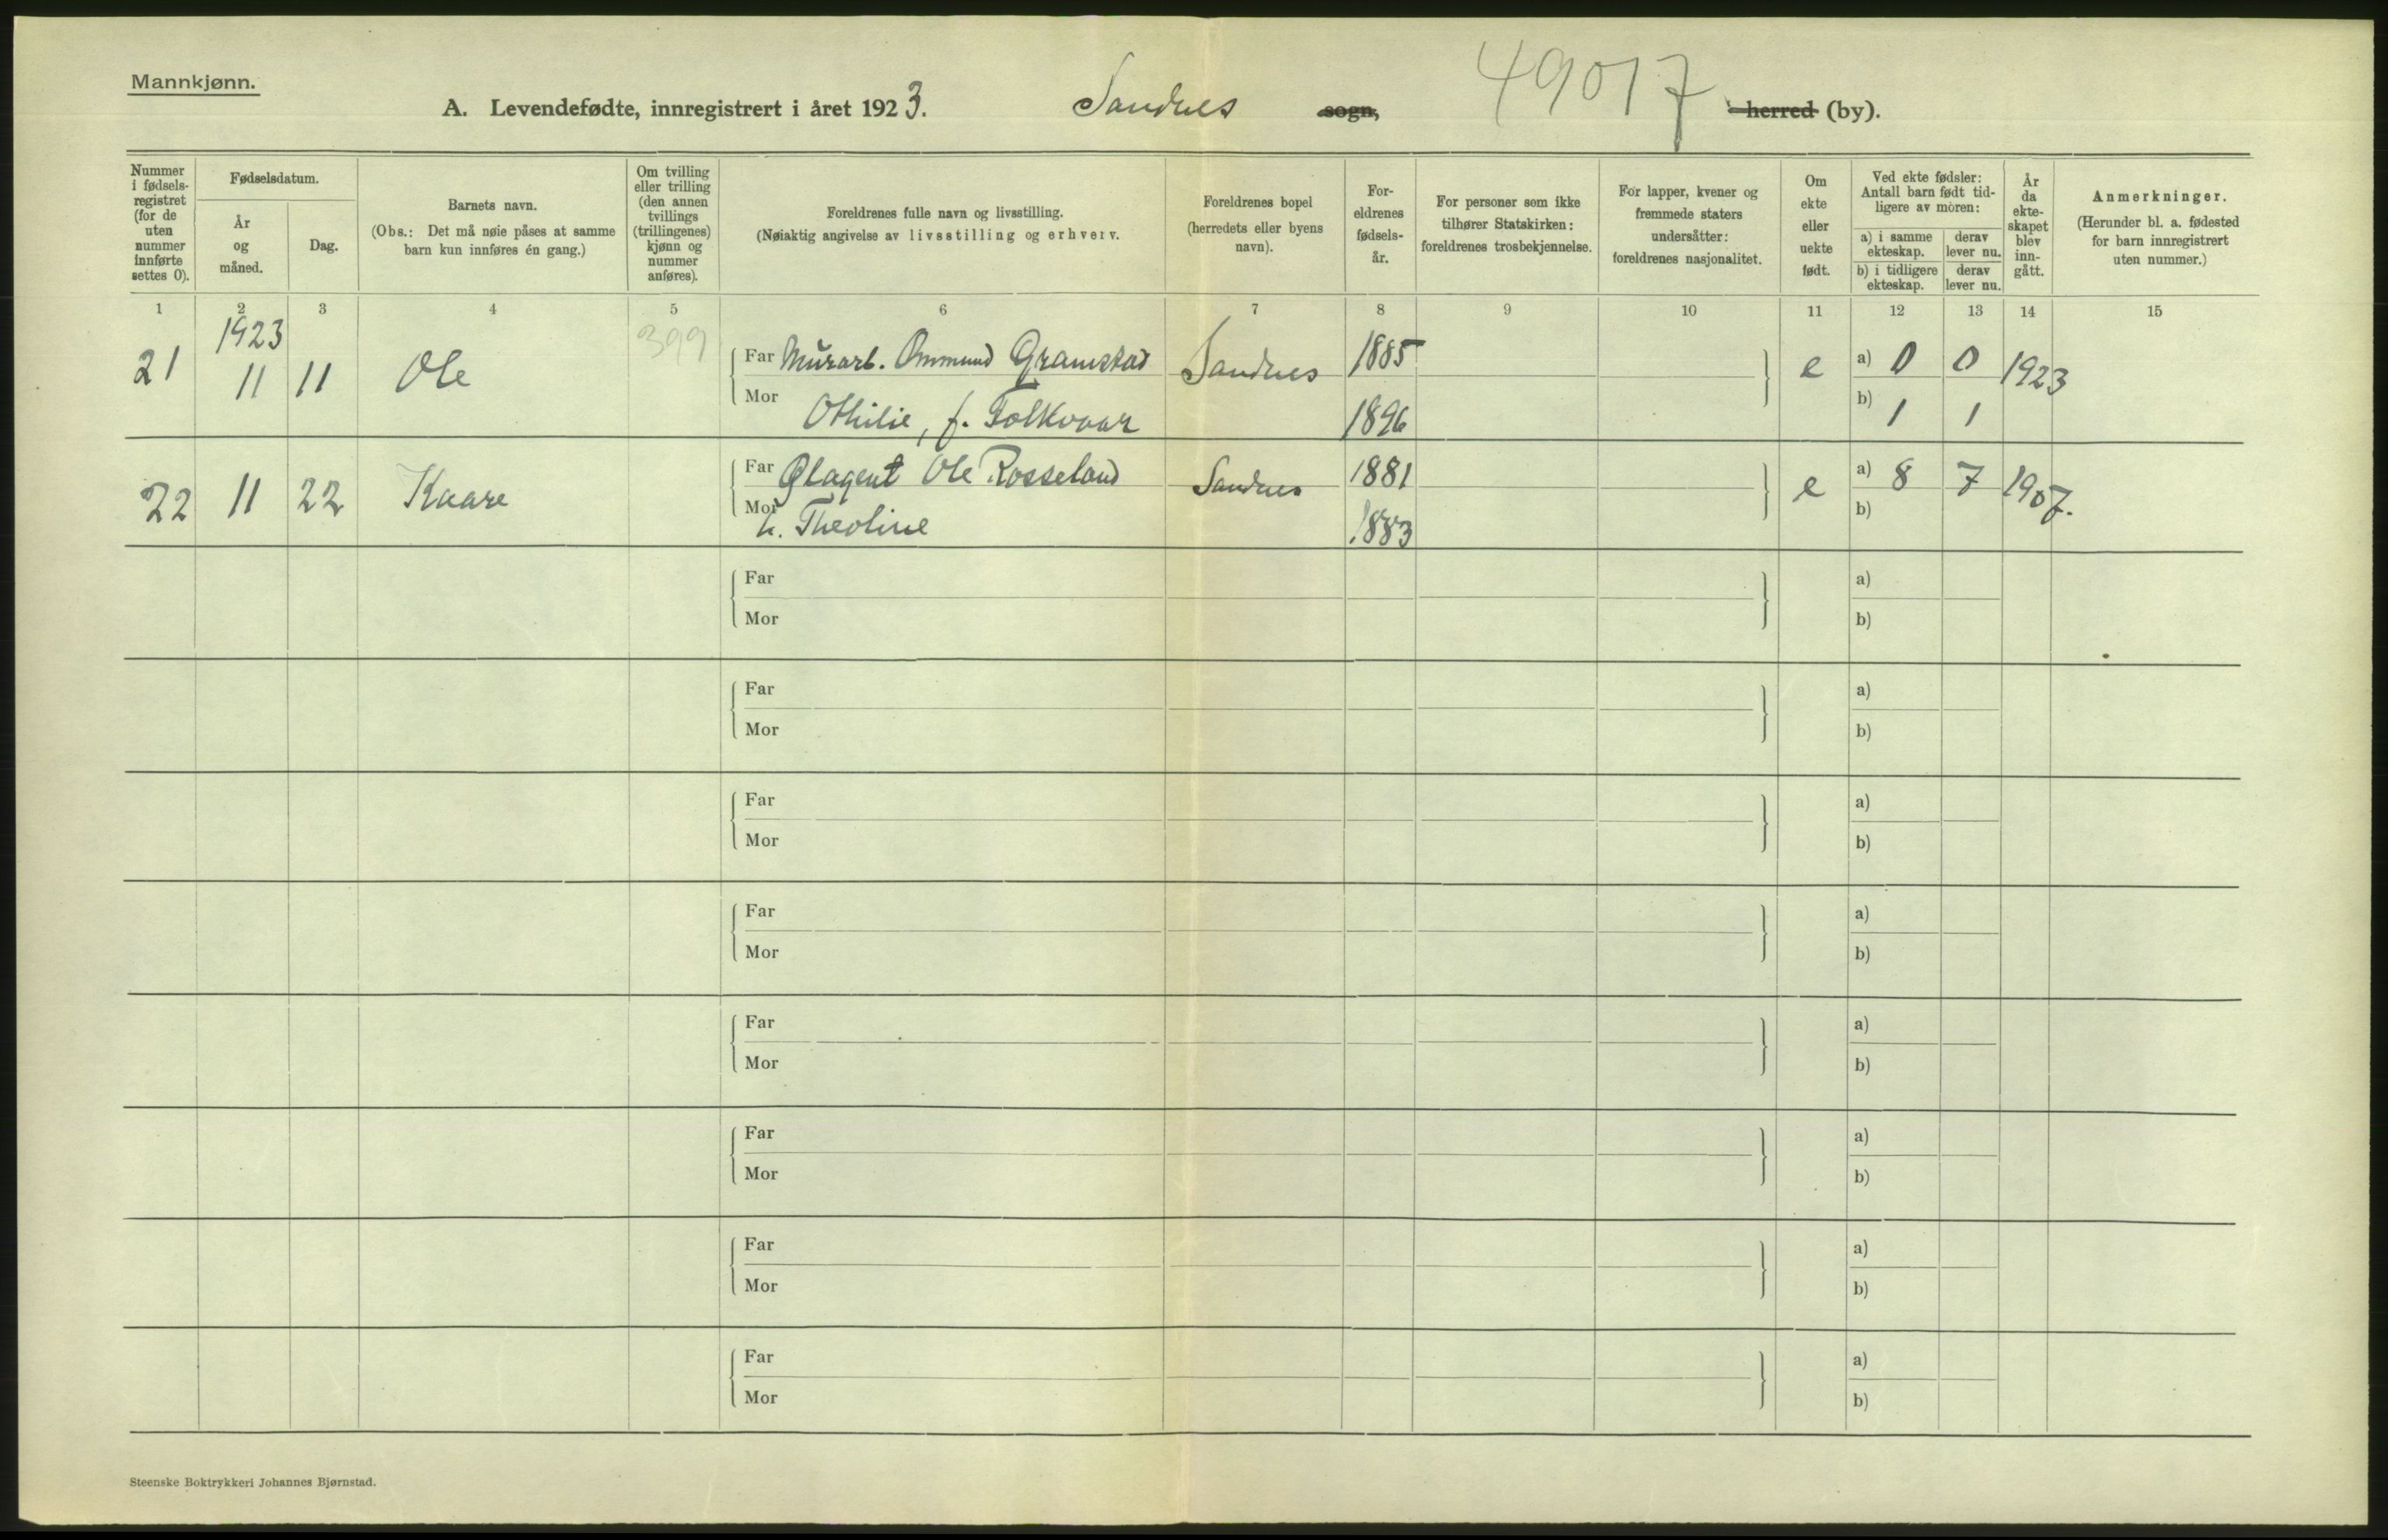 Mannkjønn.
A. Levendefødte, innregistrert i året 1923. Sandnes sogn, herred (by).
49017
Nummer i fødsels-registret (for de uten nummer innførte settes 0).
Fødselsdatum.
År og måned.
Dag.
Barnets navn.
(Obs.: Det må nøie påses at samme barn kun innføres én gang.)
Om tvilling eller trilling (den annen tvillings (trillingenes) kjønn og nummer anføres).
Foreldrenes fulle navn og livsstilling.
(Nøiaktig angivelse av livsstilling og erhverv.
Foreldrenes bopel (herredets eller byens navn).
For-eldrenes fødsels-år.
For personer som ikke tilhører Statskirken: foreldrenes trosbekjennelse.
For lapper, kvener og fremmede staters undersåtter: foreldrenes nasjonalitet.
Om ekte eller uekte født.
Ved ekte fødsler: Antall barn født tid-ligere av moren:
a) i samme ekteskap.
derav lever nu.
b) i tidligere ekteskap.
derav lever nu.
År da ekte-skapet blev inn-gått.
Anmerkninger.
(Herunder bl. a. fødested for barn innregistrert uten nummer.)
1 2 3 4 5 6 7 8 9 10 11 12 13 14 15
1923
399
21 11 11 Ole Far Murarb. Ommund Gramstad Sandnes 1885 e a) 0 0 1923
Mor Othilie, f. Folkvaar 1896 b) 1 1
22 11 22 Kaare Far Ølagent Ole Rosseland Sandnes 1881 e a) 8 7 1907.
Mor h. Theoline 1883 b)
Far a)
Mor b)
Far a)
Mor b)
Far a)
Mor b)
Far a)
Mor b)
Far a)
Mor b)
Far a)
Mor b)
Far a)
Mor b)
Far a)
Mor b)
Steenske Boktrykkeri Johannes Bjørnstad.